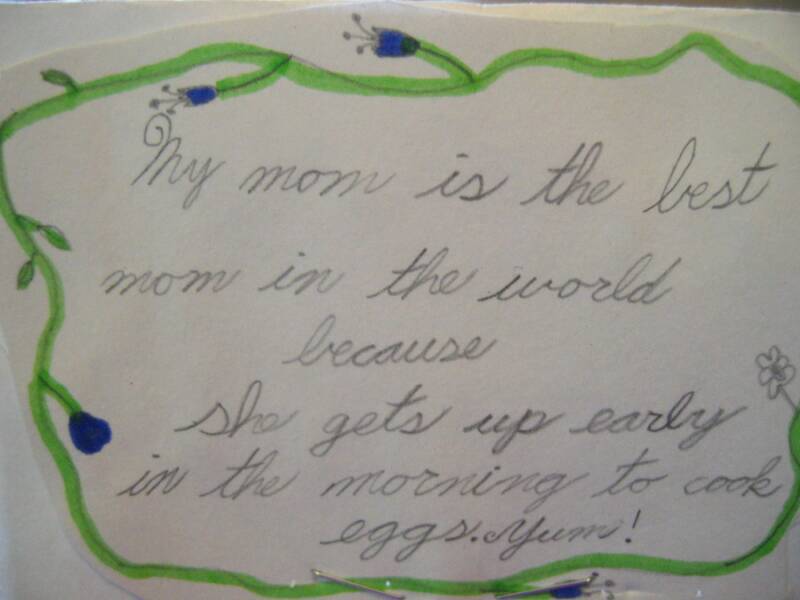 My mom is the best
mom in the world
because
she gets up early
in the morning to cook
eggs. Yum!